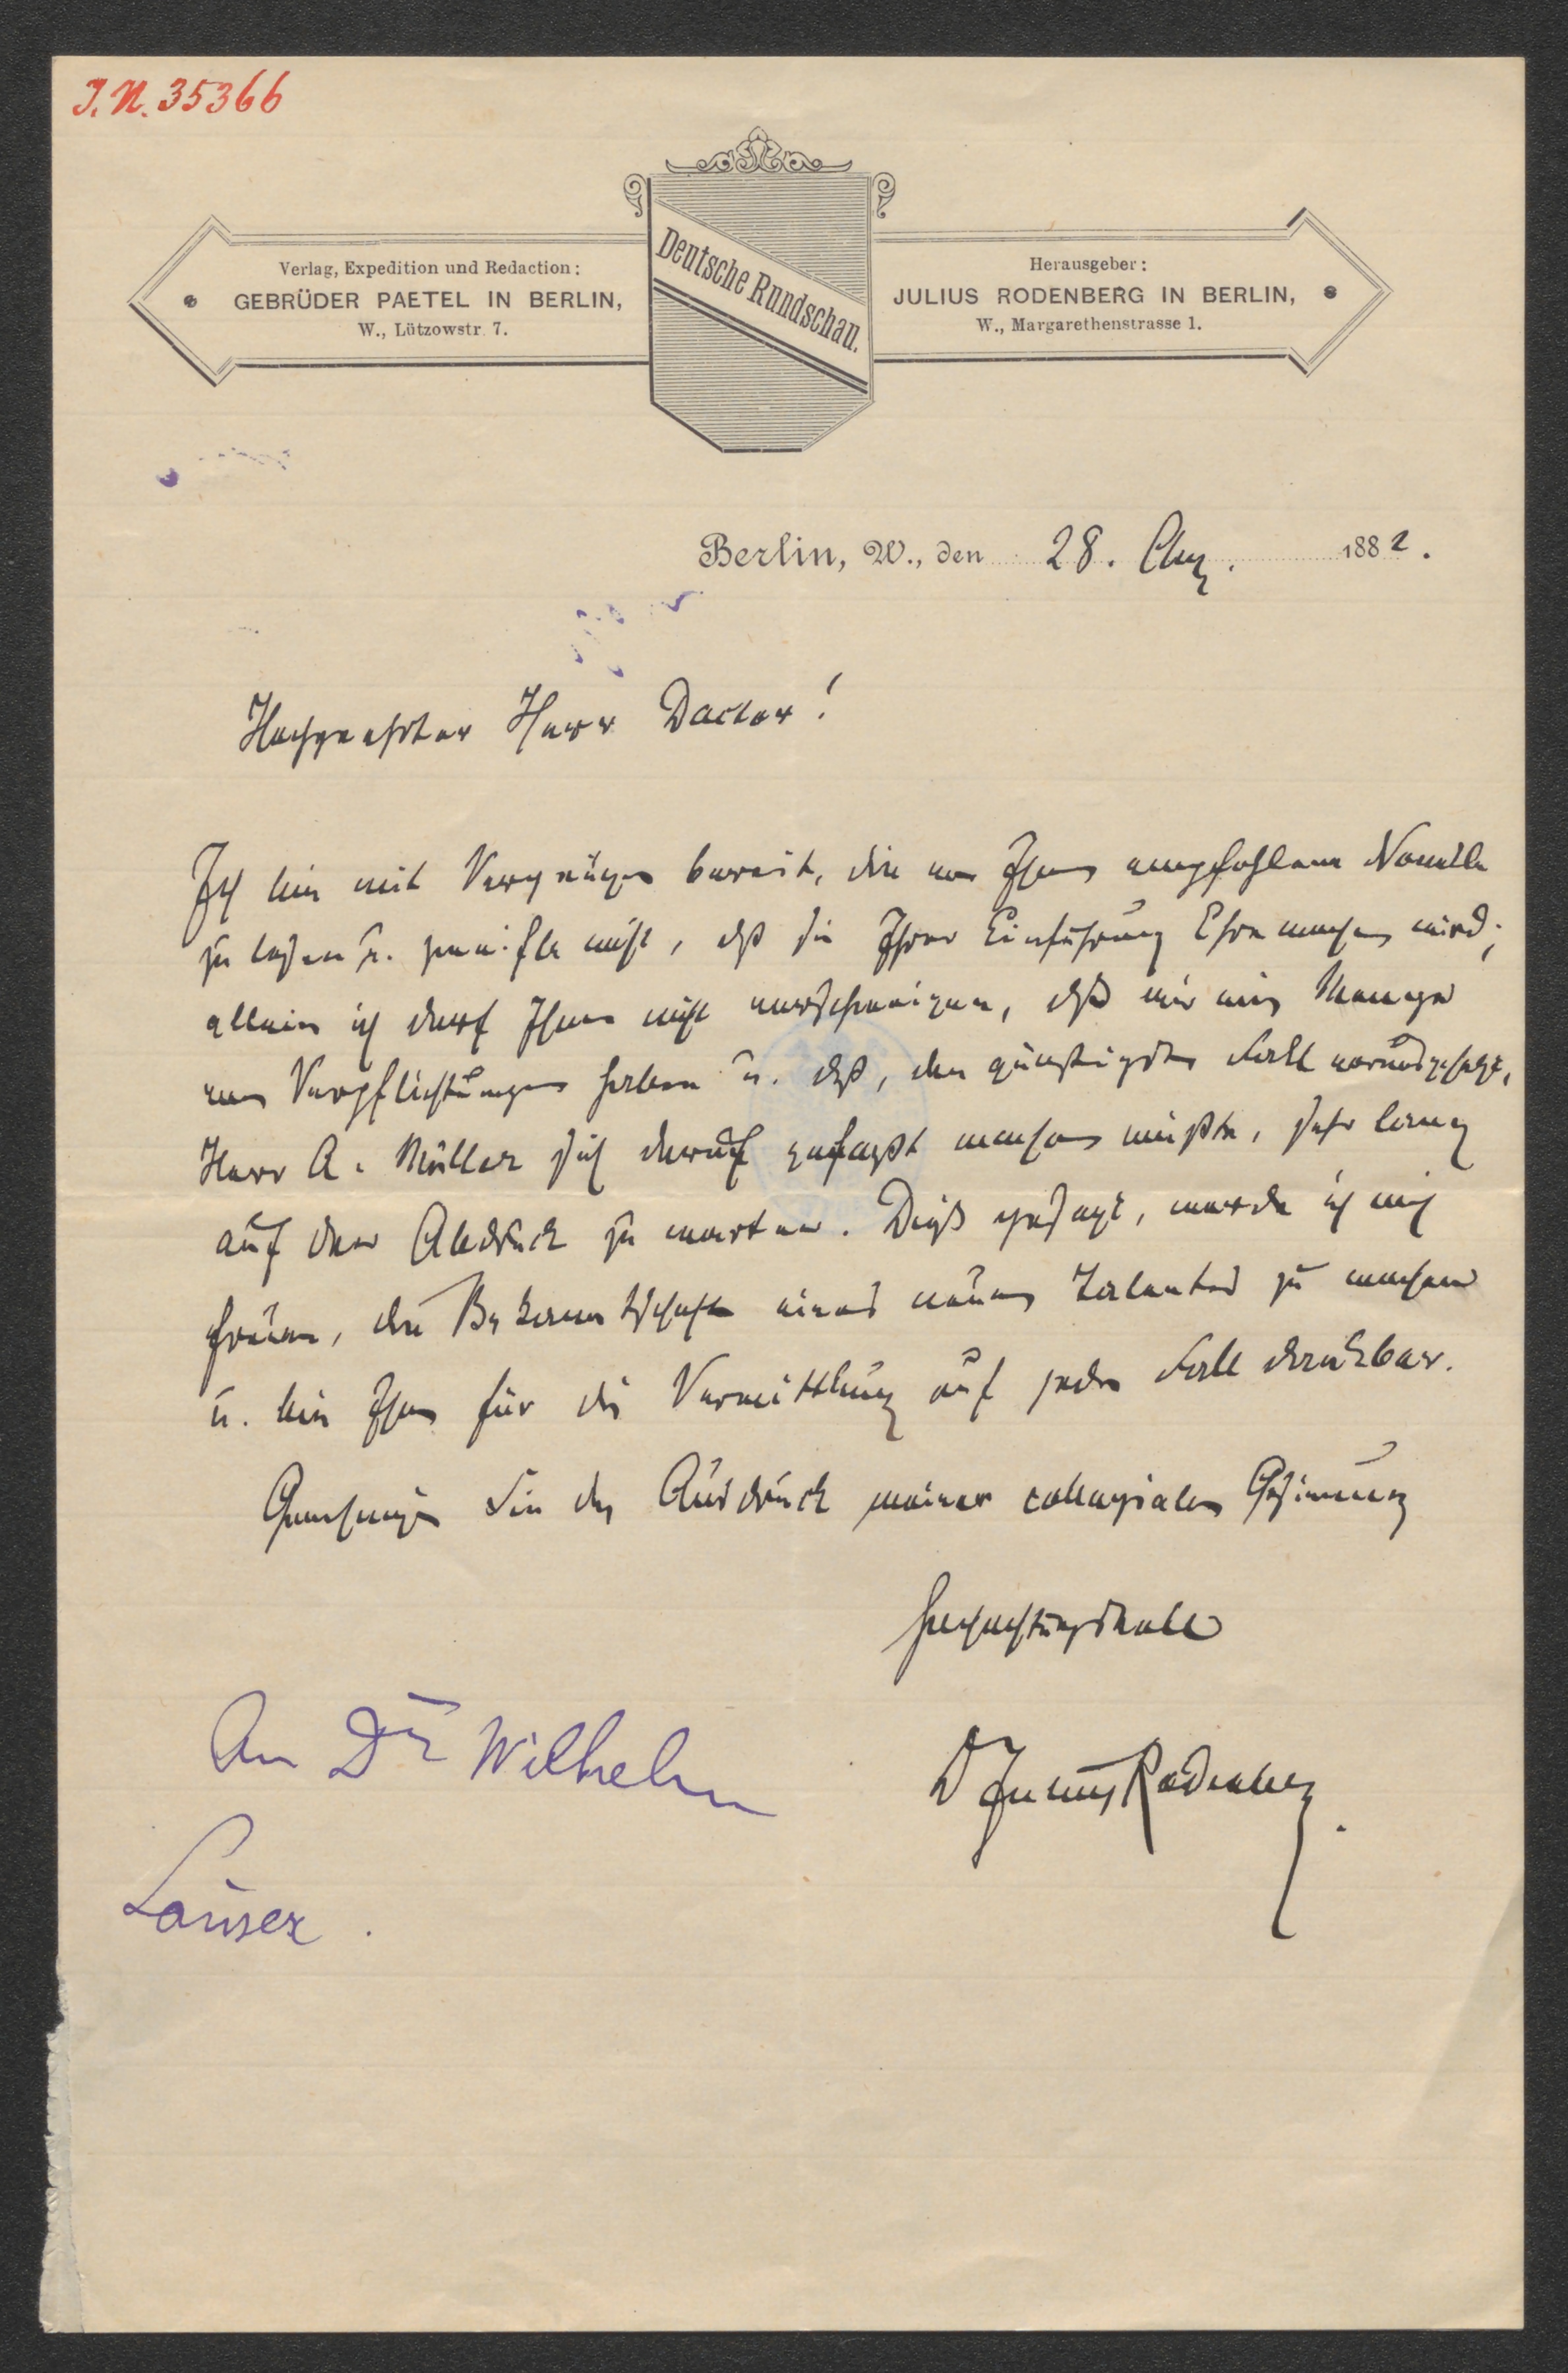 J. N. 35366
Verlag, Expedition und Redaction:
GEBRÜDER PAETEL IN BERLIN,
W., Lützowstr. 7.
Deutsche Rundschau.
Herausgeber:
JULIUS RODENBERG IN BERLIN,
W., Margarethenstrasse 1.
Berlin, W., den 28. Aug. 1882.
Hochgeehrter Herr Doctor!
Ich bin mit Vergnügen bereit, die von Ihnen empfohlene Novelle
zu lesen u. zweifle nicht, daß sie Ihrer Einführung Ehre machen wird;
allein ich darf Ihnen nicht verschweigen, daß wir eine Menge
von Verpflichtungen haben u. daß, den günstigsten Fall vorausgesetzt,
Herr A. Müller sich darauf gefaßt machen müßte, sehr lang
auf den Abdruck zu warten. Dieß gesagt, werde ich mich
freuen, die Bekanntschaft eines neuen Talentes zu machen
u. bin Ihnen für die Vermittlung auf jeden Fall dankbar.
Genehmigen Sie den Ausdruck meiner collegialen Gesinnung
hochachtungsvoll
Dr Julius Rodenberg.
An Dr Wilhelm
Lauser.